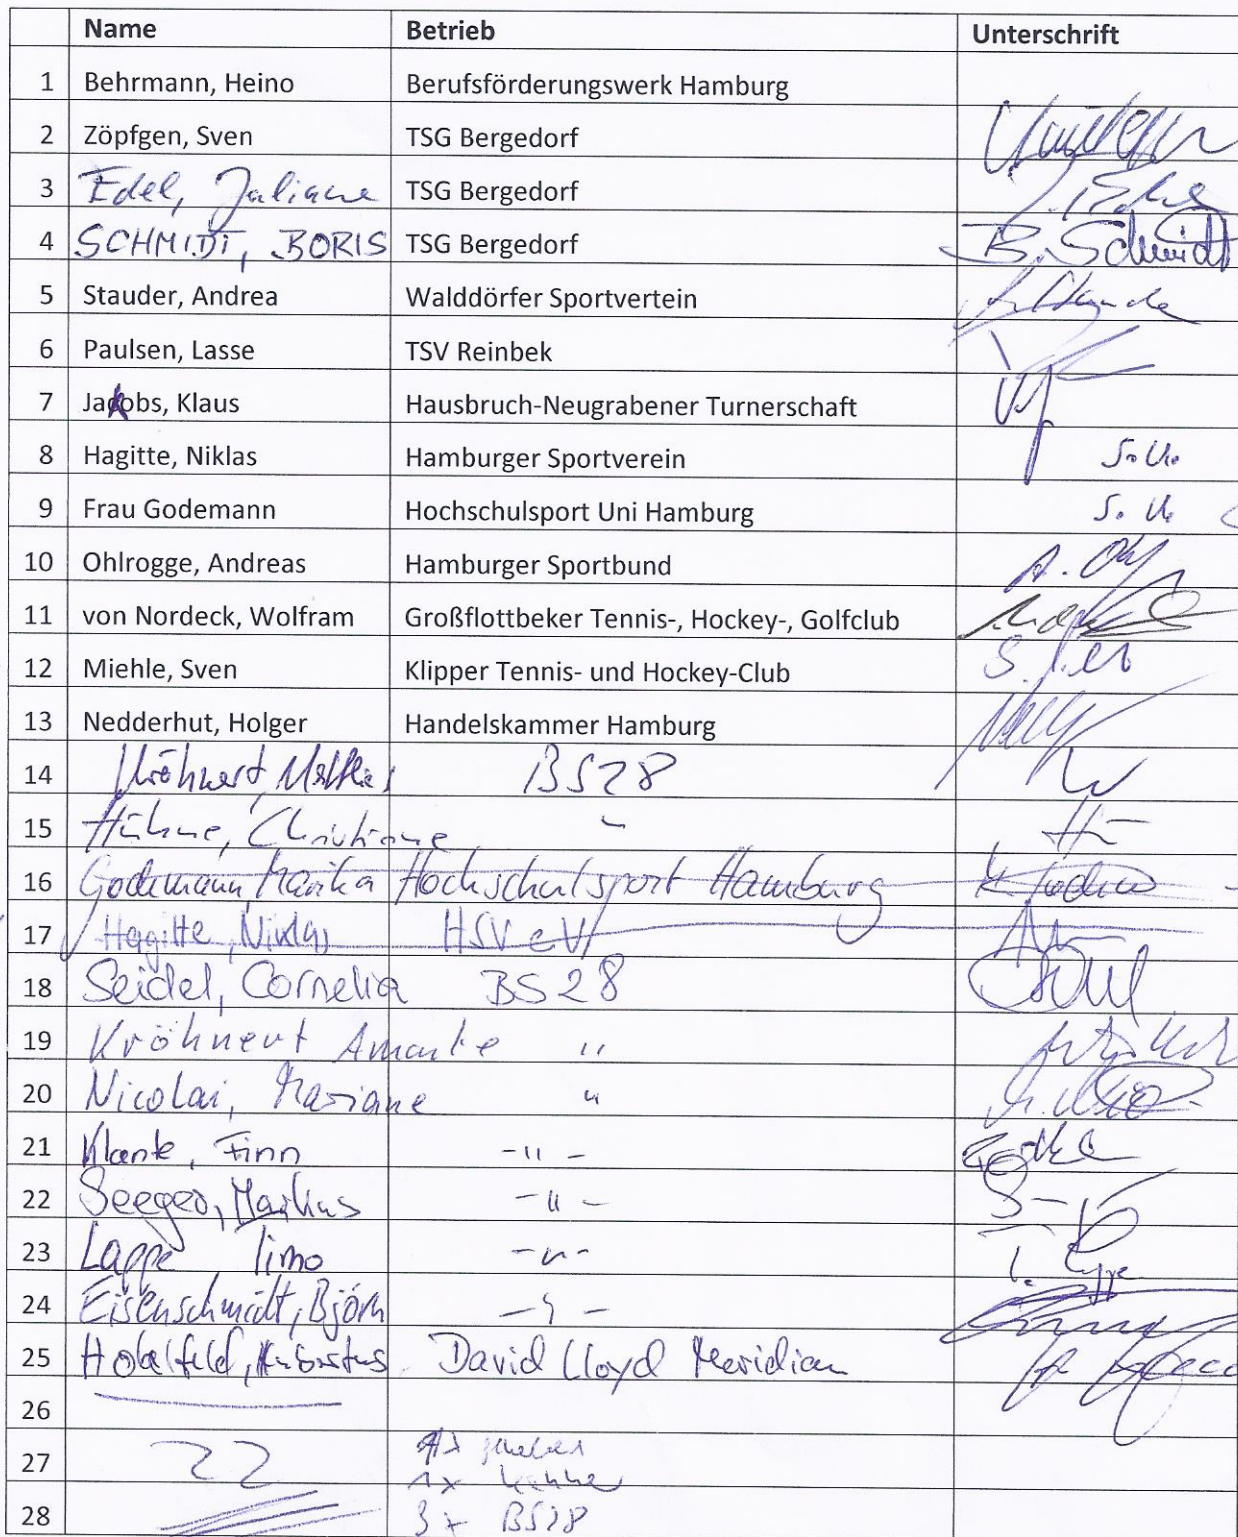 Name Betrieb Unterschrift
1 Behrmann, Heino Berufsförderungswerk Hamburg
2 Zöpfgen, Sven TSG Bergedorf
3 Edel, Juliane TSG Bergedorf
4 SCHMIDT, BORIS TSG Bergedorf B. Schmidt
5 Stauder, Andrea Walddörfer Sportvertein
6 Paulsen, Lasse TSV Reinbek
7 Jakobs, Klaus Hausbruch-Neugrabener Turnerschaft
8 Hagitte, Niklas Hamburger Sportverein s. u.
9 Frau Godemann Hochschulsport Uni Hamburg s. u.
10 Ohlrogge, Andreas Hamburger Sportbund
11 von Nordeck, Wolfram Großflottbeker Tennis-, Hockey-, Golfclub
12 Miehle, Sven Klipper Tennis- und Hockey-Club
13 Nedderhut, Holger Handelskammer Hamburg
14 Kröhnert, BS28
15 Hühne, Christiane "
16 Godemann, Marika Hochschulsport Hamburg
17 Hagitte, Niklas HSV eV
18 Seidel, Cornelia BS28
19 Kröhnert "
20 Nicolai, Mariane "
21 Klante, Finn -"-
22 Seeger, Markus -"-
23 Lappe Timo -"- T. Lappe
24 Eisenschmidt, Björn -"-
25 David Lloyd Meridian
26
27 22
1x
28 3x BS28